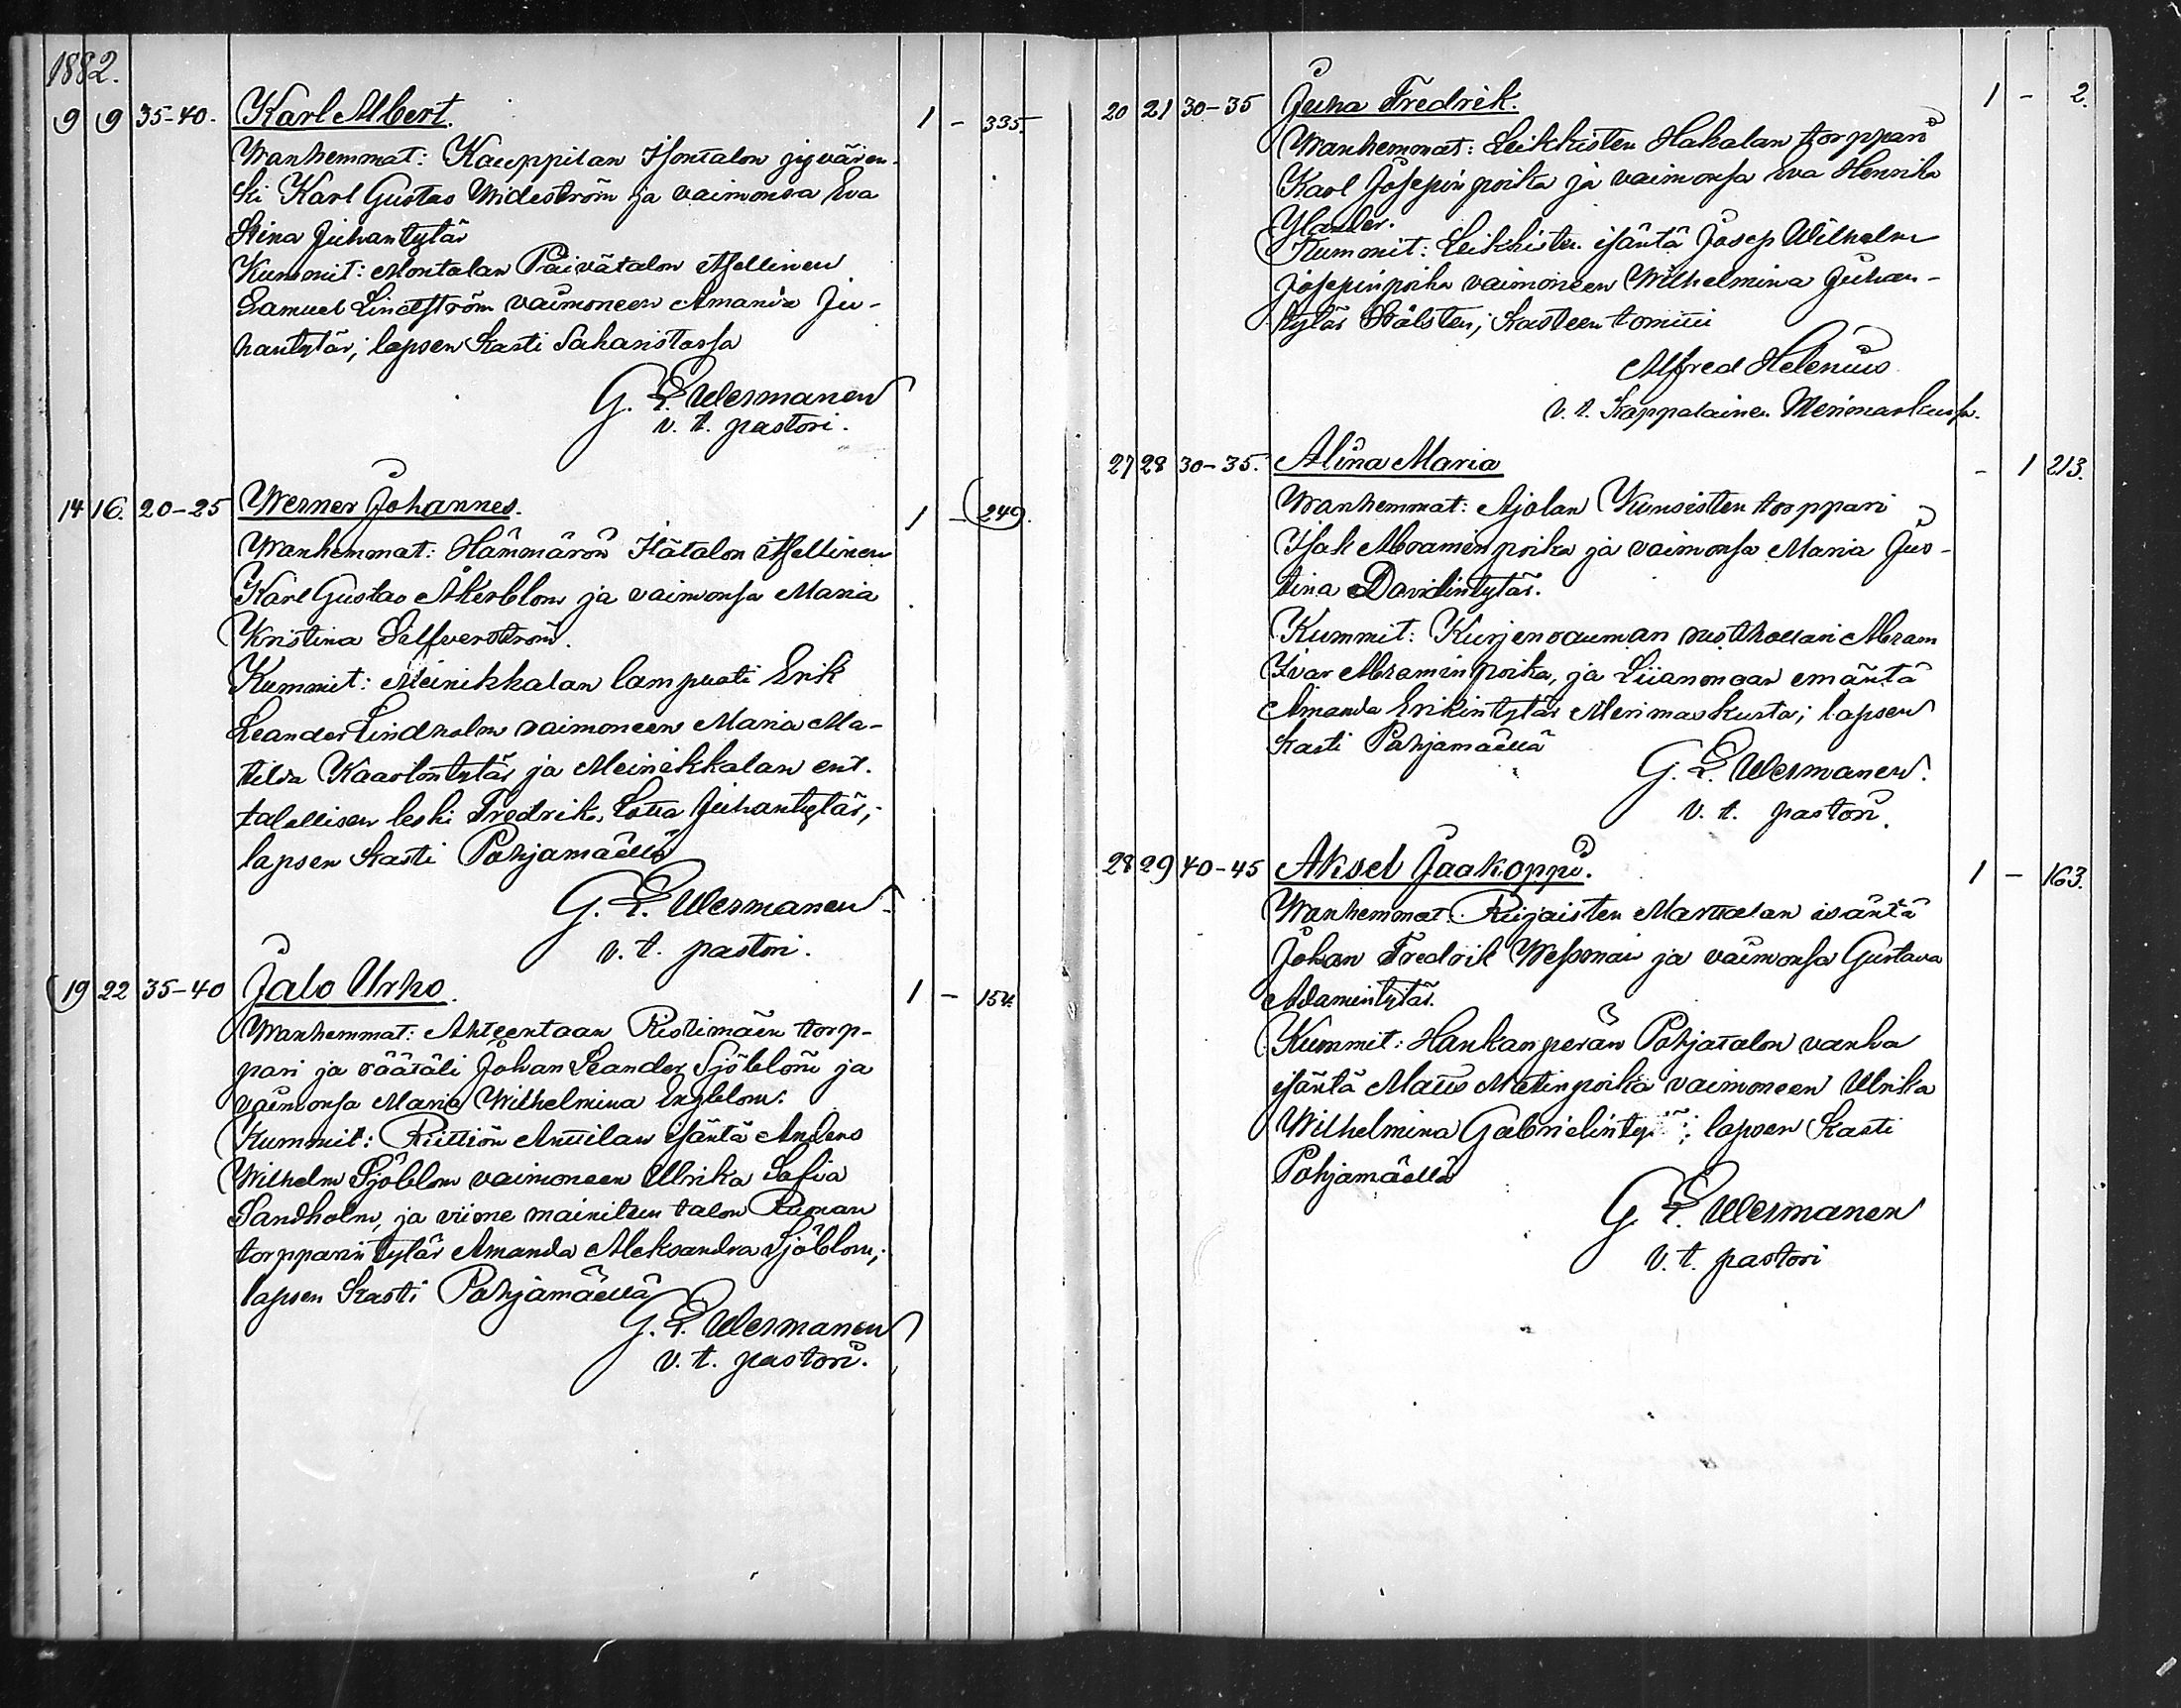 1882.
9 9 35-40. Karl Albert. 1 - 335.
Wanhemmat: Kauppilan Isontalon jyvären-
ki Karl Gustav Wideström ja vaimonsa Eva
Stina Juhantytär
Kummit: Montalan Päivätalon itsellinen
Samuel Lindström vaimoneen Amanda Ju-
hantytär; lapsen kasti Saharistossa
G. E. Wermanen
v. t. pastori.
14 16. 20-25 Werner Johannes. 1 - 249.
Wanhemmat: Hämmärön Itätalon itsellinen
Karl Gustav Åkerblom ja vaimonsa Maria
Kristina Silfverström.
Kummit: Meinikkalan lampuoti Erik
Leander Lindholm vaimoneen Maria Ma-
tilda Kaarlontytär ja Meinikkalan ent.
talollisen leski Fredrika Lotta Juhantytär;
lapsen kasti Pohjamäellä
G. E. Wermanen
v. t. pastori.
19 22 35-40 Jalo Urho. 1 - 154.
Wanhemmat: Ahteentaan Ristimäen torp-
pari ja räätäli Johan Leander Sjöblom ja
vaimonsa Maria Wilhelmina Engblom.
Kummit: Riittiön Anttilan isäntä Anders
Wilhelm Sjöblom vaimoneen Ulrika Sofia
Sandholm, ja viime mainitun talon Ruman
torpparin tytär Amanda Aleksandra Sjöblom;
lapsen kasti Pohjamäellä
G. E. Wermanen
v. t. pastori.
20 21 30-35 Juha Fredrik. 1 - 2.
Wanhemmat: Leikkisten Hakalan torppari
Karl Josepinpoika ja vaimonsa Eva Henrika
Ylander.
Kummit: Leikkisten isäntä Josep Wilhelm
Josepinpoika vaimoneen Wilhelmina Juhan-
tytär Stålsten; kasteen toimitti
Alfred Helenius
v. t. Kappalainen Merimaskussa.
27 28 30-35. Alina Maria - 1 213.
Wanhemmat: Ajolan Kunsisten torppari
Isak Abramin poika ja vaimonsa Maria Jus-
tina Davidintytär.
Kummit: Kurjenrauman rusthollari Abram
Ivar Abramin poika, ja Liianmaan emäntä
Amanda Erikintytär Merimaskusta; lapsen
kasti Pohjamäellä
G. E. Wermanen.
v. t. pastori.
28 29 40-45 Aksel Jaakoppi. 1 - 163.
Wanhemmat: Riijaisten Marttalan isäntä
Johan Fredrik Wessman ja vaimonsa Gustava
Adamintytär.
Kummit: Hankanperän Pohjatalon vanha
isäntä Matts Matinpoika vaimoneen Ulrika
Wilhelmina Gabrielintytär; lapsen kasti
Pohjamäellä
G. E. Wermanen
v. t. pastori